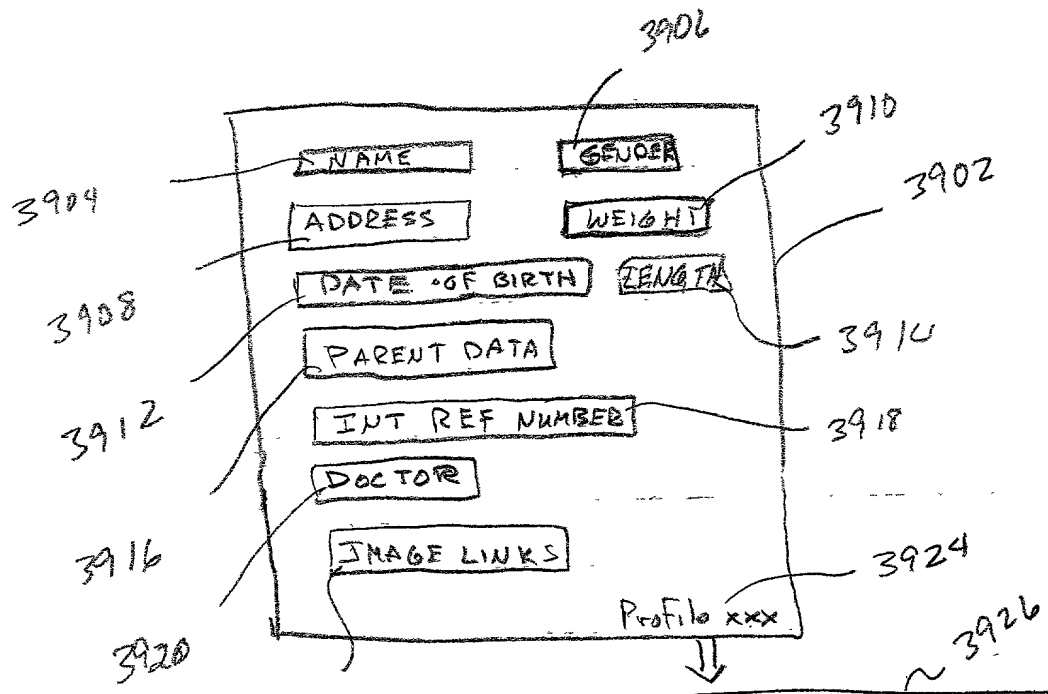 3906
3910
3902
NAME GENDER
3904
ADDRESS WEIGHT
DATE OF BIRTH LENGTH
3908
3914
PARENT DATA
3912
INT REF NUMBER
3918
DOCTOR
3916
IMAGE LINKS
3924
Profile xxx
3920
3926